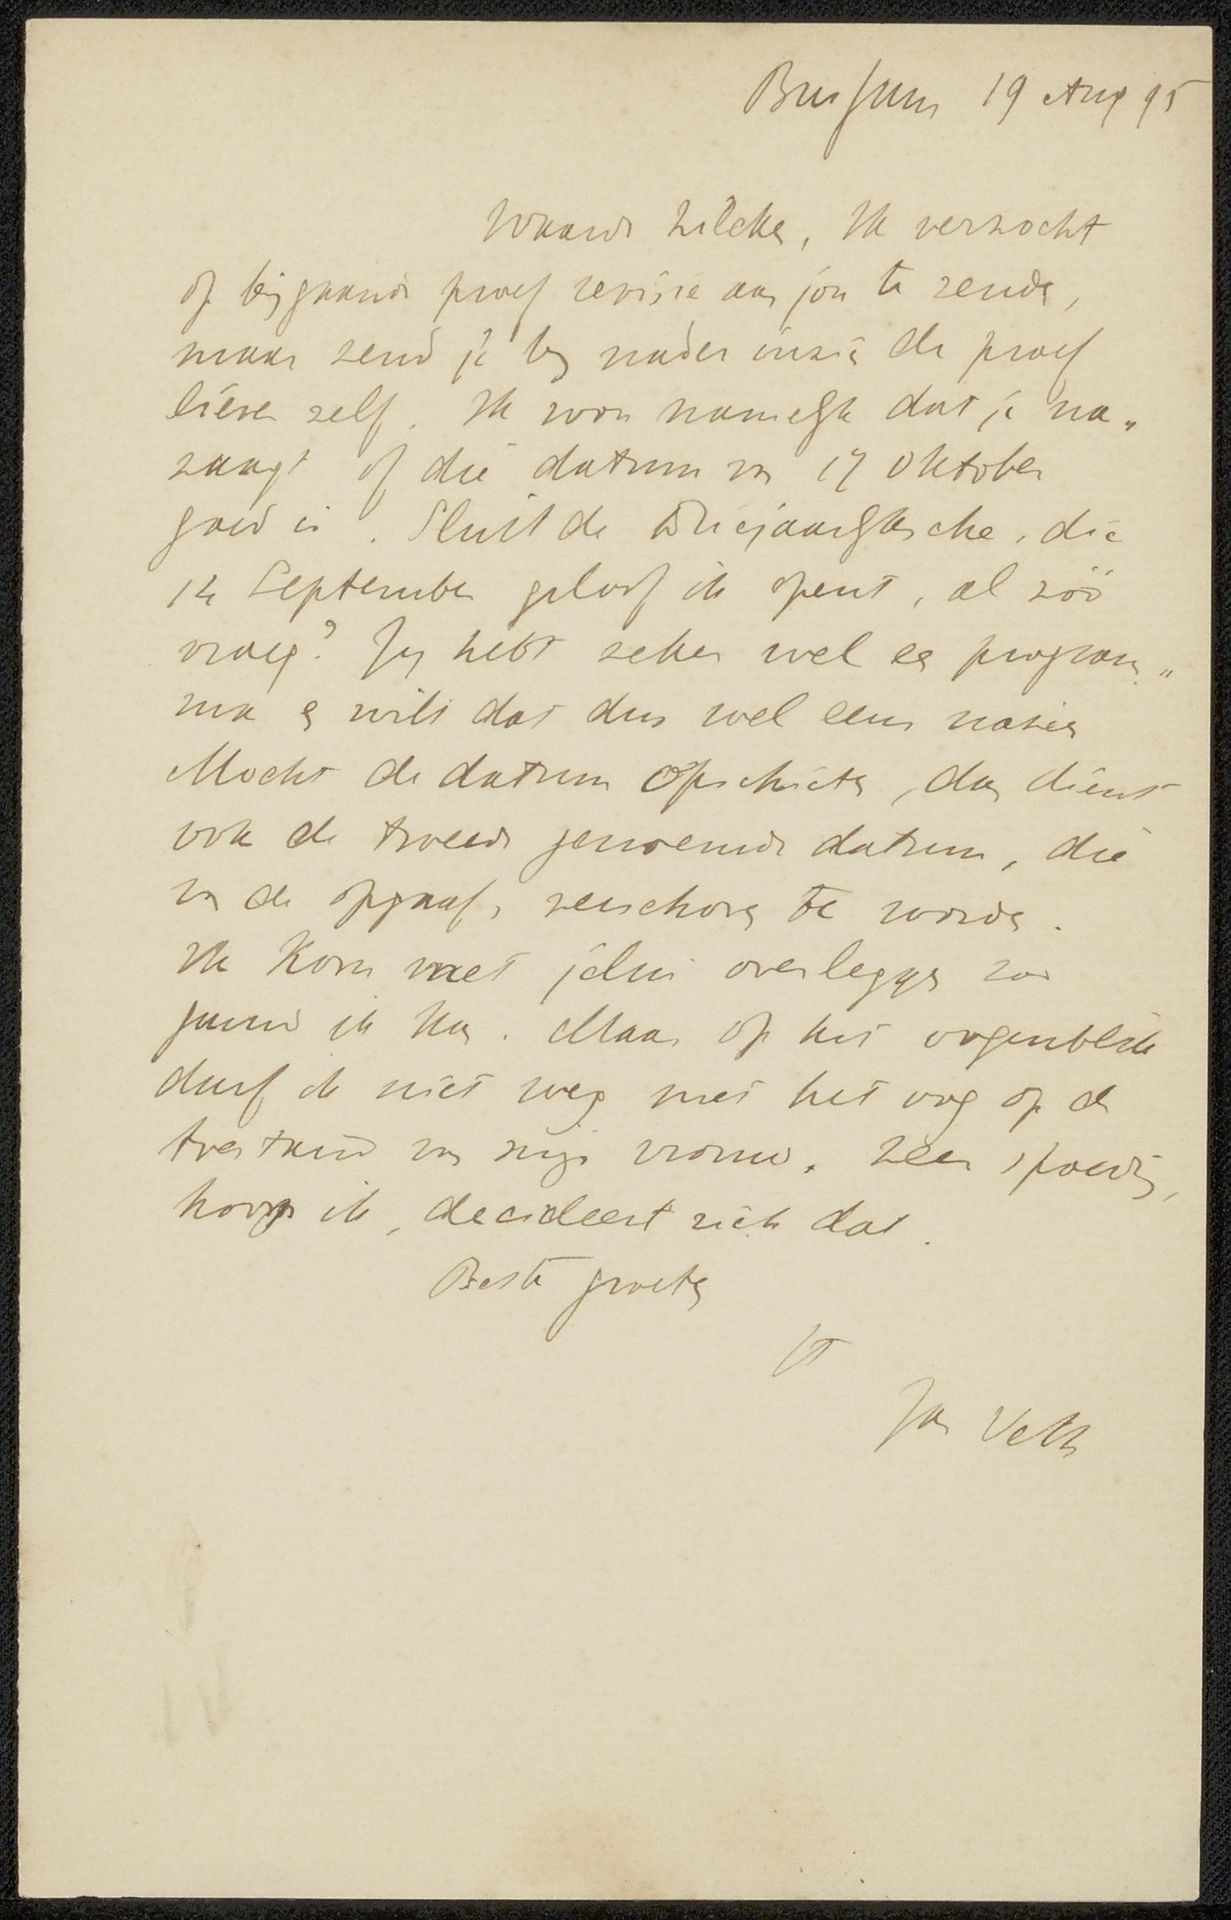 Bussum 19 Aug 95
Waarde Zilcken, Ik verzocht
op bijgaande proef revisie aan jou te zenden,
maar zend je bij nader inzien de proef
liever zelf. Ik wou namelijk dat je na„
zaagt of die datum van 17 Oktober
goed is. Sluit de driejaarlijksche, die
14 September geloof ik opent, al zóó
vroeg? Jij hebt zeker wel een program„
ma en wilt dat dus wel eens nazien
Mocht de datum opschieten, dan dient
ook de tweede genoemde datum, die
van de opgaaf, verschoven te worden.
Ik kom met jelui overleggen zoo
gauw ik kan. Maar op het oogenblik
durf ik niet weg met het oog op den
toestand van mijn vrouw. Zeer spoedig,
hoop ik, decideert zich dat.
Beste groeten
tt
Jan Veth